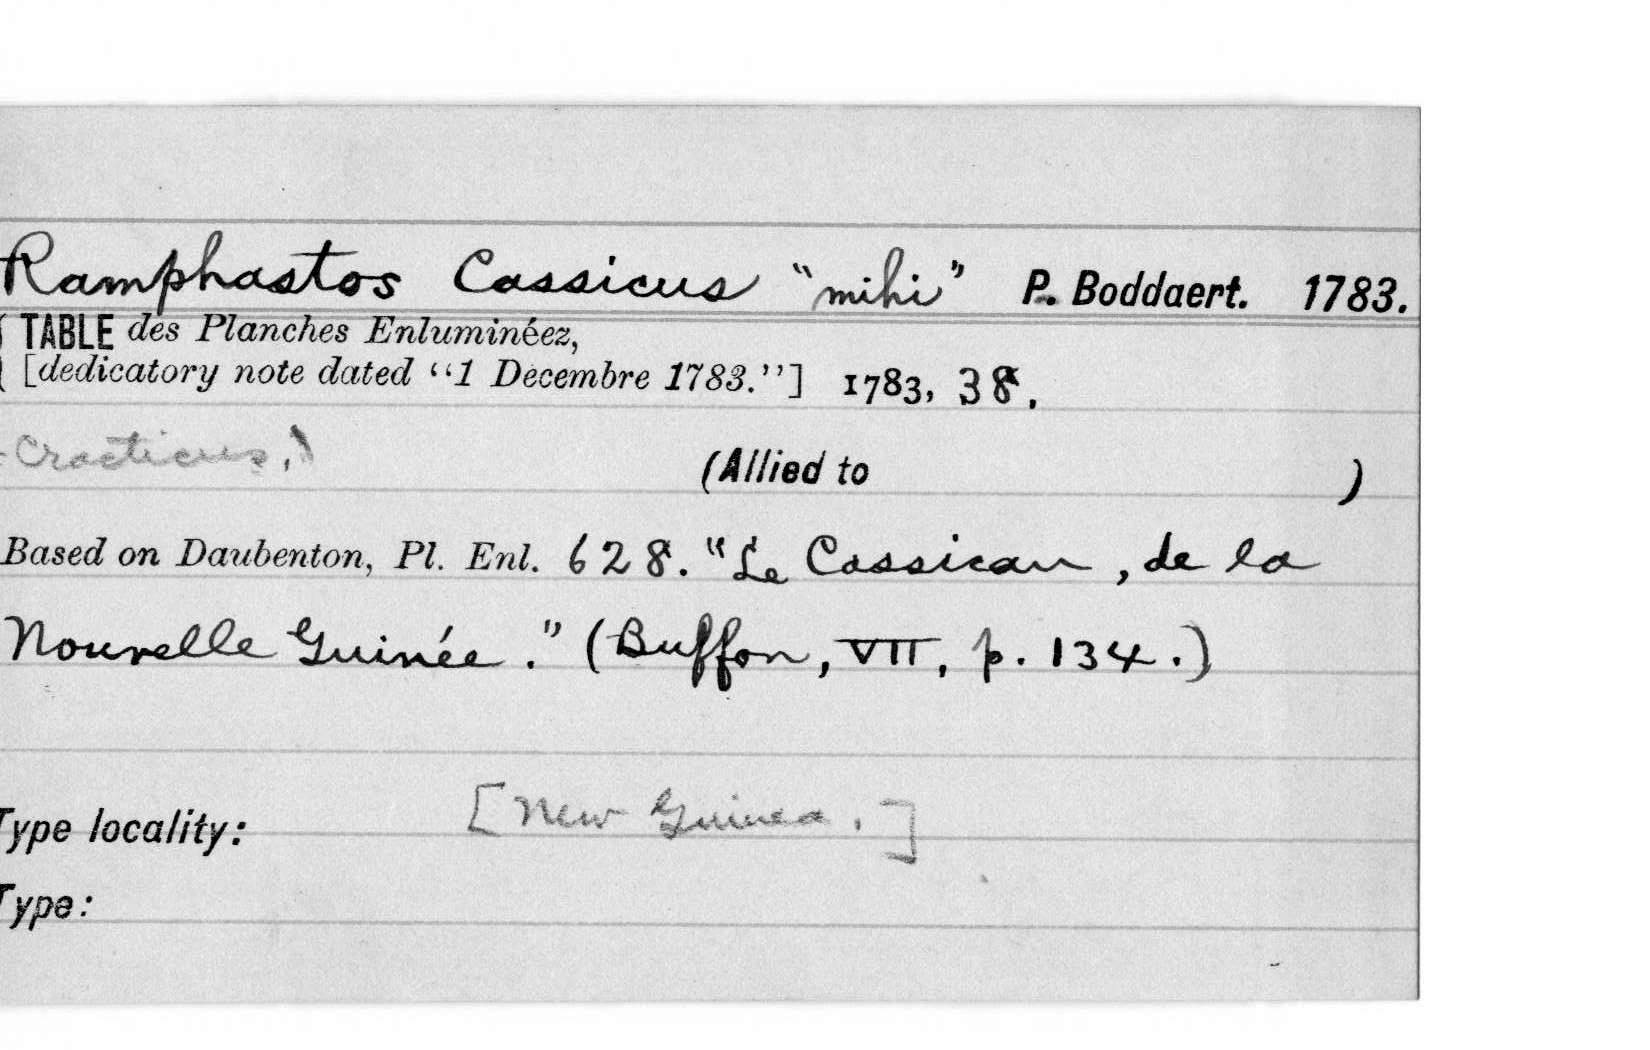 Ramphastos Cassicus "mihi" P. Boddaert. 1783.
( TABLE des Planches Enluminéez,
( [dedicatory note dated "1 Decembre 1783."] 1783, 38.
Cracticus.)
(Allied to )
Based on Daubenton, Pl. Enl. 628. "Le Cassican, de la
Nouvelle Guinée." (Buffon, VII, p. 134.)
Type locality: [New Guinea.]
Type: